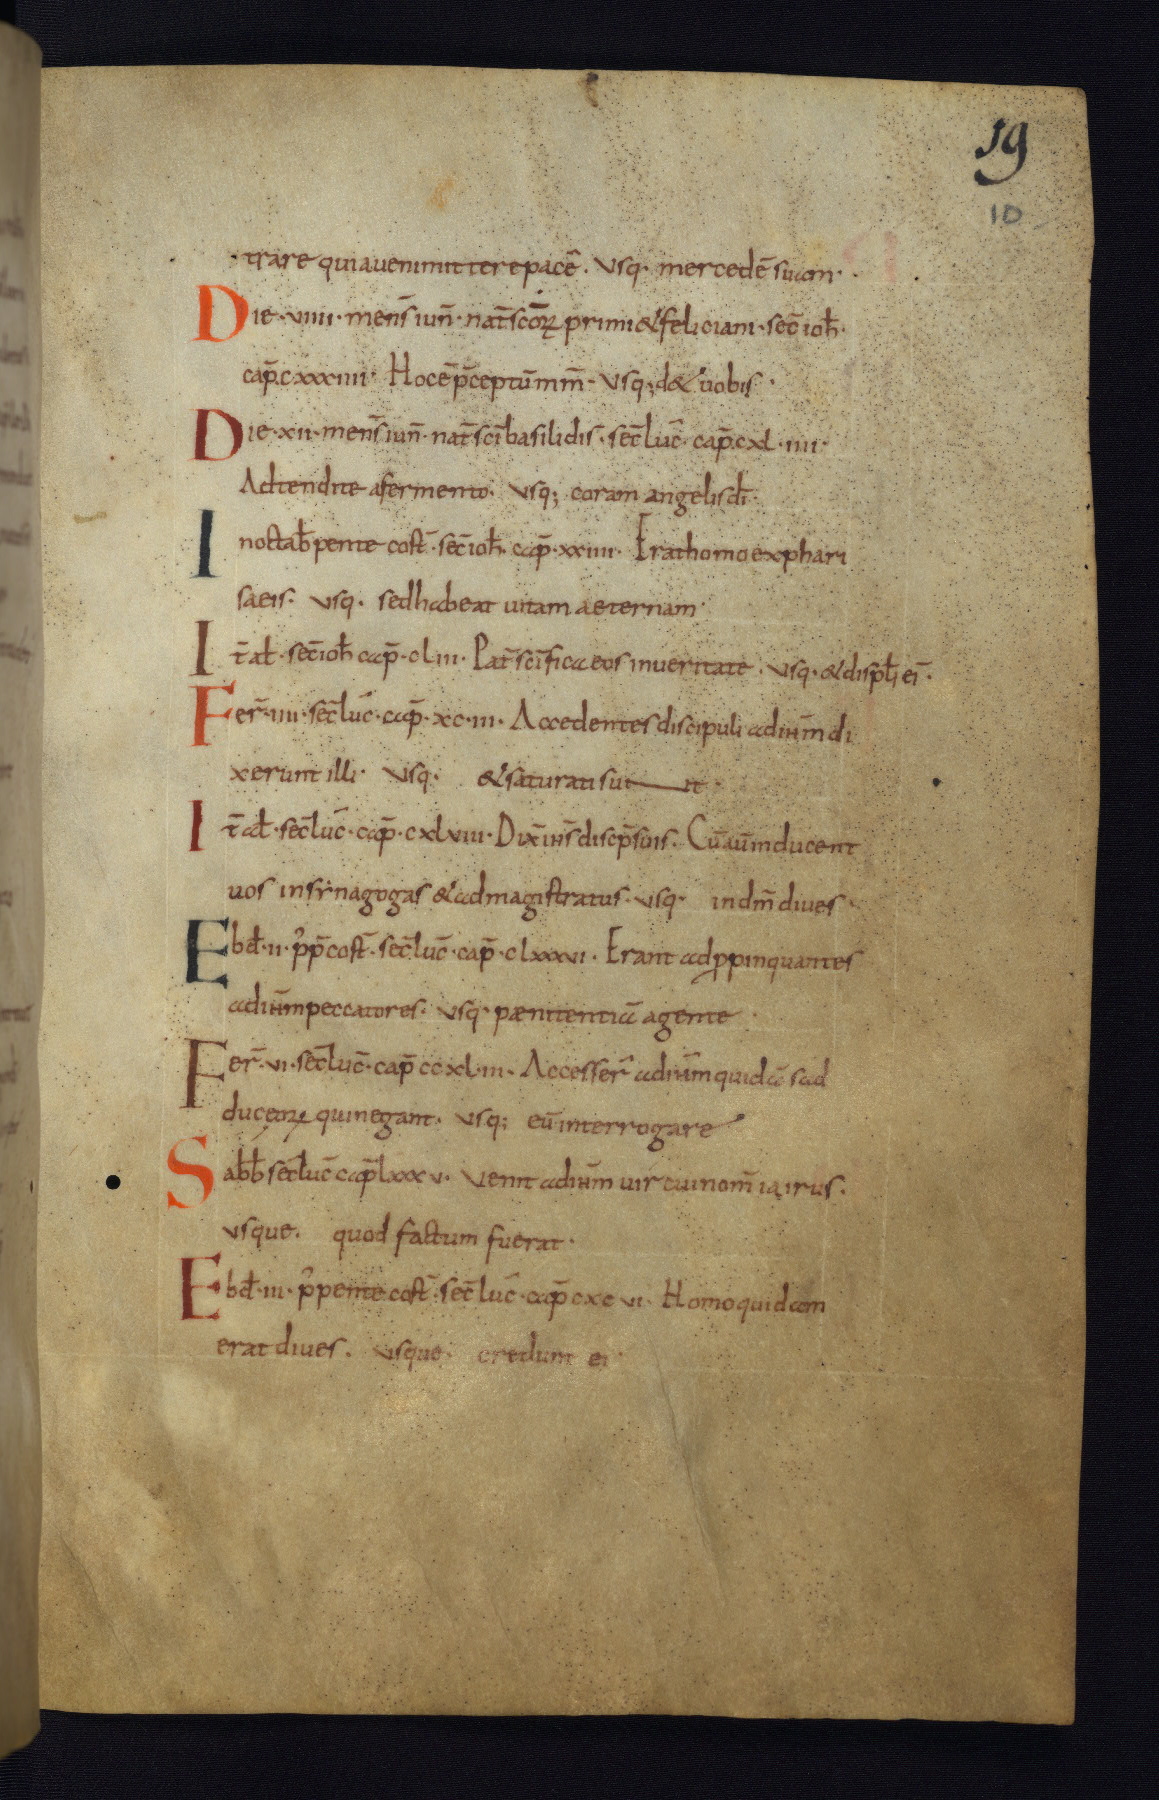 19
10
trare quia veni mittere pacē. usq· mercedē suam·
Die·viiii·mens̄ iun̄·nat̄ sc̄ōꝝ primi & feliciani·sec̄ ioh̄·
cap̄·cxxxiiii· Hoc ē p̄ceptū m̄m̄· usq; d& uobis·
Die·xii·mens̄ iun̄·nat̄ sc̄i basilidis·sec̄ luc̄·cap̄·cxl·iiii·
Adtendite a fermento· usq; coram angelis dī·
In octab̄ pente cost̄·sec̄ ioh̄·cap̄·xxiiii· Erat homo ex phari
saeis· usq· sed habeat uitam aeternam·
It̄ al̄·sec̄ ioh̄ cap̄·cliii· Pat̄ sc̄ifica eos in ueritate· usq·& disp̄l̄i ei·
Fer̄·iiii·sec̄ luc̄·cap̄·xc·iii· Accedentes discipuli ad ih̄m di
xerunt illi· usq· & saturati sunt·
It̄ al̄·sec̄ luc̄·cap̄·cxlviii· Dix̄ ih̄s discip̄ suis· Cū aūm ducent
uos in synagogas & ad magistratus· usq· in dm̄ diues·
Ebd̄·ii·p̄ p̄ cost̄·sec̄ luc̄·cap̄·clxxxvi· Erant adp̱pinquantes
ad ih̄m peccatores· usq· pænitentiā agente·
Fer̄·vi·sec̄ luc̄·cap̄ ccxl·iii· Accesser̄ ad ih̄m quidā sad
duceoꝝ qui negant· usq; eū interrogare
Sabb̄ sec̄ luc̄ cap̄ lxxxv· Venit ad ih̄m uir cui nom̄ iairus·
usque· quod factum fuerat·
Ebd̄·iii·p̄ pente cost̄·sec̄ luc̄·cap̄ cxcvi· Homo quidam
erat diues· usque· credunt ei·